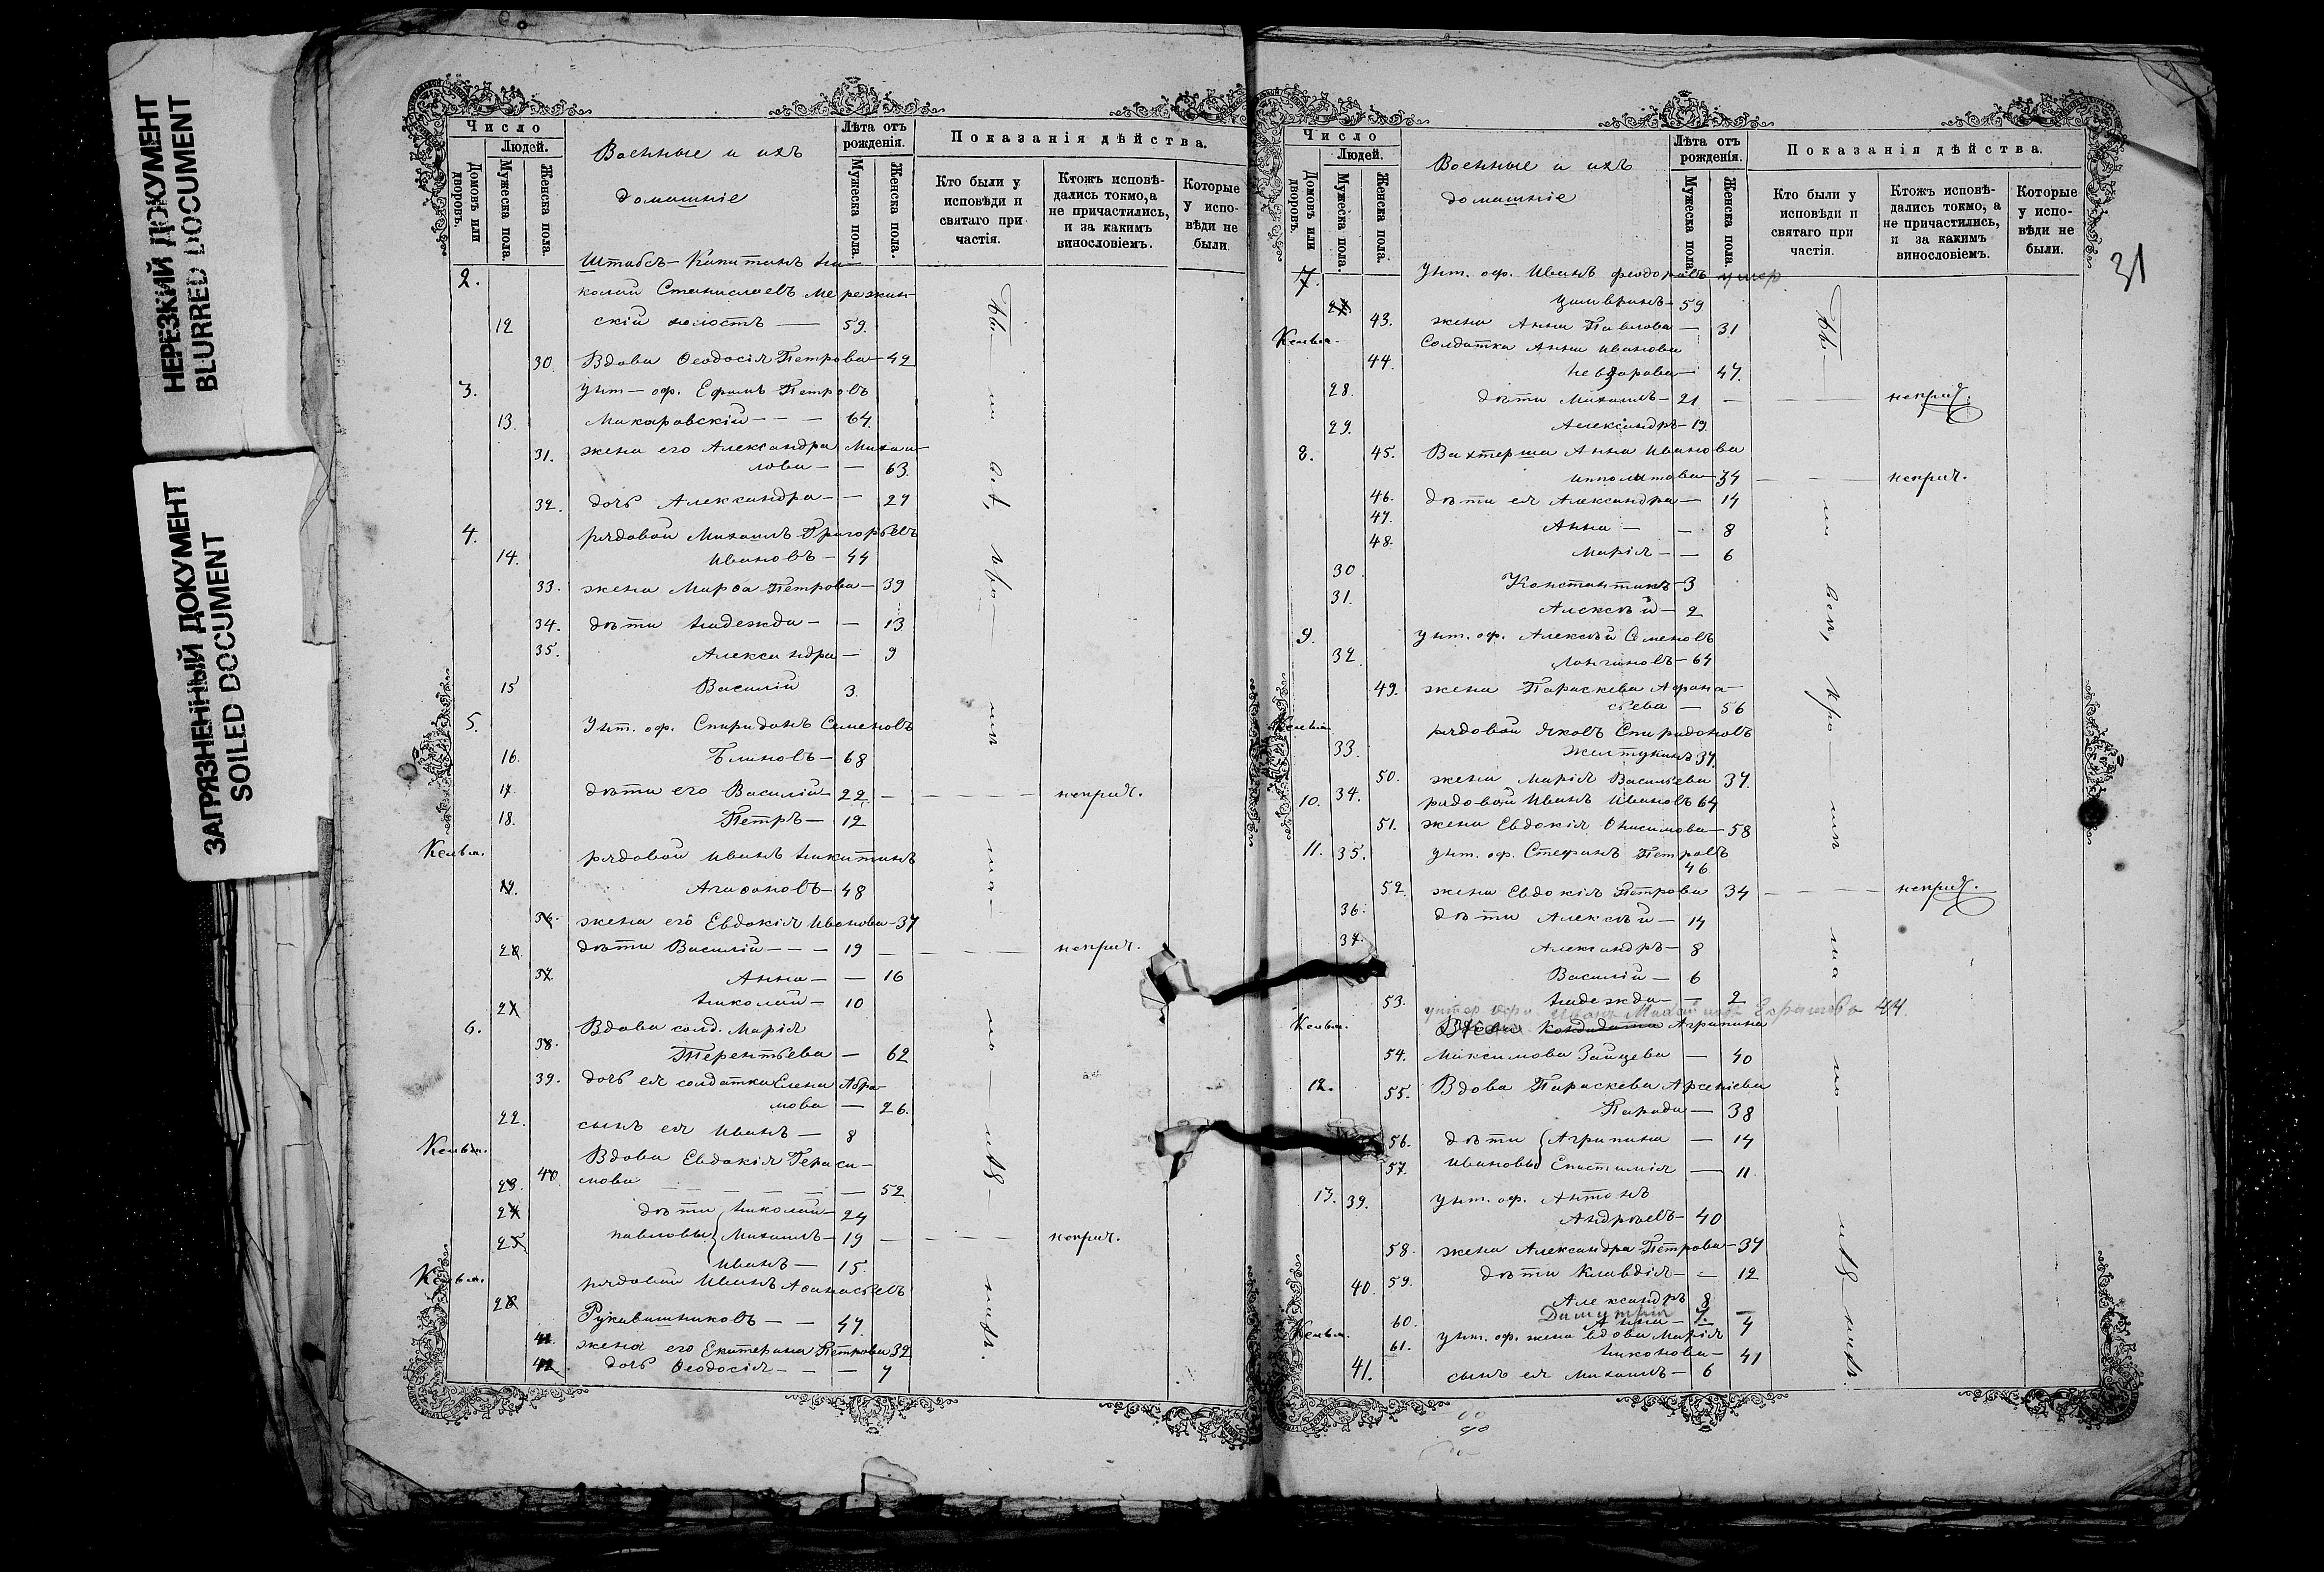 НЕРЕЗКИЙ ДОКУМЕНТ
BLURRED DOCUMENT
ЗАГРЯЗНЕННЫЙ ДОКУМЕНТ
SOILED DOCUMENT
Число
Людей.
Домовъ или дворовъ.
Мужеска пола.
Женска пола.
Военные и ихъ
домашніе
Лѣта отъ рожденія.
Мужеска пола.
Женска пола.
Показанія дѣйства.
Кто были у исповѣди и святаго при частія.
Ктожъ исповѣ-дались токмо, а не причастились, и за какимъ винословіемъ.
Которые у испо-вѣди не были.
2. Штабсъ-Капитанъ Ни-
колай Станиславъ Мережин-
12 скій холостъ — 59.
30. Вдова Ѳеодосія Петрова — 42
3. Унт-оф. Ефимъ Петровъ
13. Макаровскій — — 64.
31. жена его Александра Михаи-
лова — — 63.
32. дочь Александра — — 27
4. рядовой Михаилъ Григорьевъ
14. Ивановъ — 44
33. жена Марѳа Петрова — 39
34. дѣти Надежда — — 13
35. Александра — 9
15 Василій 3.
5. Унт. оф. Спиридонъ Семеновъ
16. Блиновъ — 68
17. дѣти его Василій — 22. — неприч.
18. Петръ — 12
Кельм.
рядовой Иванъ Никитинъ
19. Агаѳоновъ — 48
36. жена его Евдокія Иванова — 37
20. дѣти Василій — — 19 — неприч.
37. Анна — — 16
21. Николай — 10
6. Вдова солд. Марія
38. Терентьева — 62
39. дочь ея солдатка Елена Абра-
мова — 26.
22. сынъ ея Иванъ — 8
Кельм.
Вдова Евдокія Гераси-
23. 40. мова — 52
24. дѣти Николай — 24
25. Павловы Михаилъ — 19 — неприч.
Иванъ — 15.
Кельм.
рядовой Иванъ Аѳанасьевъ
26. Рукавишниковъ — — 47.
41. жена его Екатерина Петрова 32
42. дочь Ѳеодосія — — — 7
31
Число
Людей.
Домовъ или дворовъ.
Мужеска пола.
Женска пола.
Военные и ихъ
домашніе
Лѣта отъ рожденія.
Мужеска пола.
Женска пола.
Показанія дѣйства.
Кто были у исповѣди и святаго при частія.
Ктожъ исповѣ-дались токмо, а не причастились, и за какимъ винословіемъ.
Которые у испо-вѣди не были.
7. Унт. оф. Иванъ Феодоровъ умер
27. — 59
43. жена Анна Павлова — 31
Кельм.
Солдатка Анна Иванова
44. — 47.
28. дѣти Михаилъ — 21 — неприч.
29. Александръ — 19.
8. 45. Вахтерша Анна Иванова
Ипполитова — 34 — неприч.
46. дѣти ея Александра — 14
47. Анна — — 8
48. Марія — — 6
30. Константинъ — 3
31. Алексѣй — 2
9. унт. оф. Алексѣй Семеновъ
32. Лонгиновъ — 64
49. жена Параскева Афана-
сьева — 56
Кельм.
рядовой Яковъ Спиридоновъ
33. Желтухинъ 37.
50. жена Марія Васильева 37.
10. 34. рядовой Иванъ Ивановъ 64
51. жена Евдокія Онисимова — 58
11. 35. унт. оф. Стефанъ Петровъ
46.
52. жена Евдокія Петрова 34 — неприч.
36. дѣти Алексѣй — 14
37. Александръ — 8
Василій — 6
53. Надежда — — 2
унтер. офи. Иванъ 44.
Кельм.
Вдова Агрипина
54. Максимова Зайцева — 40
12. 55. Вдова Параскева Арсеніева
— 38
56. дѣти Агрипина — 14
57. Ивановы Епистимія — 11.
13. 39. унт. оф. Антонъ
Андреевъ — 40
58. жена Александра Петрова — 37
59. дѣти Клавдія — — 12
40. Александръ 8
60. Анна — 4
Димитрій 7. —
Кельм.
61. унт. оф. жена вдова Марія
Никонова — 41
41. сынъ ея Михаилъ — 6